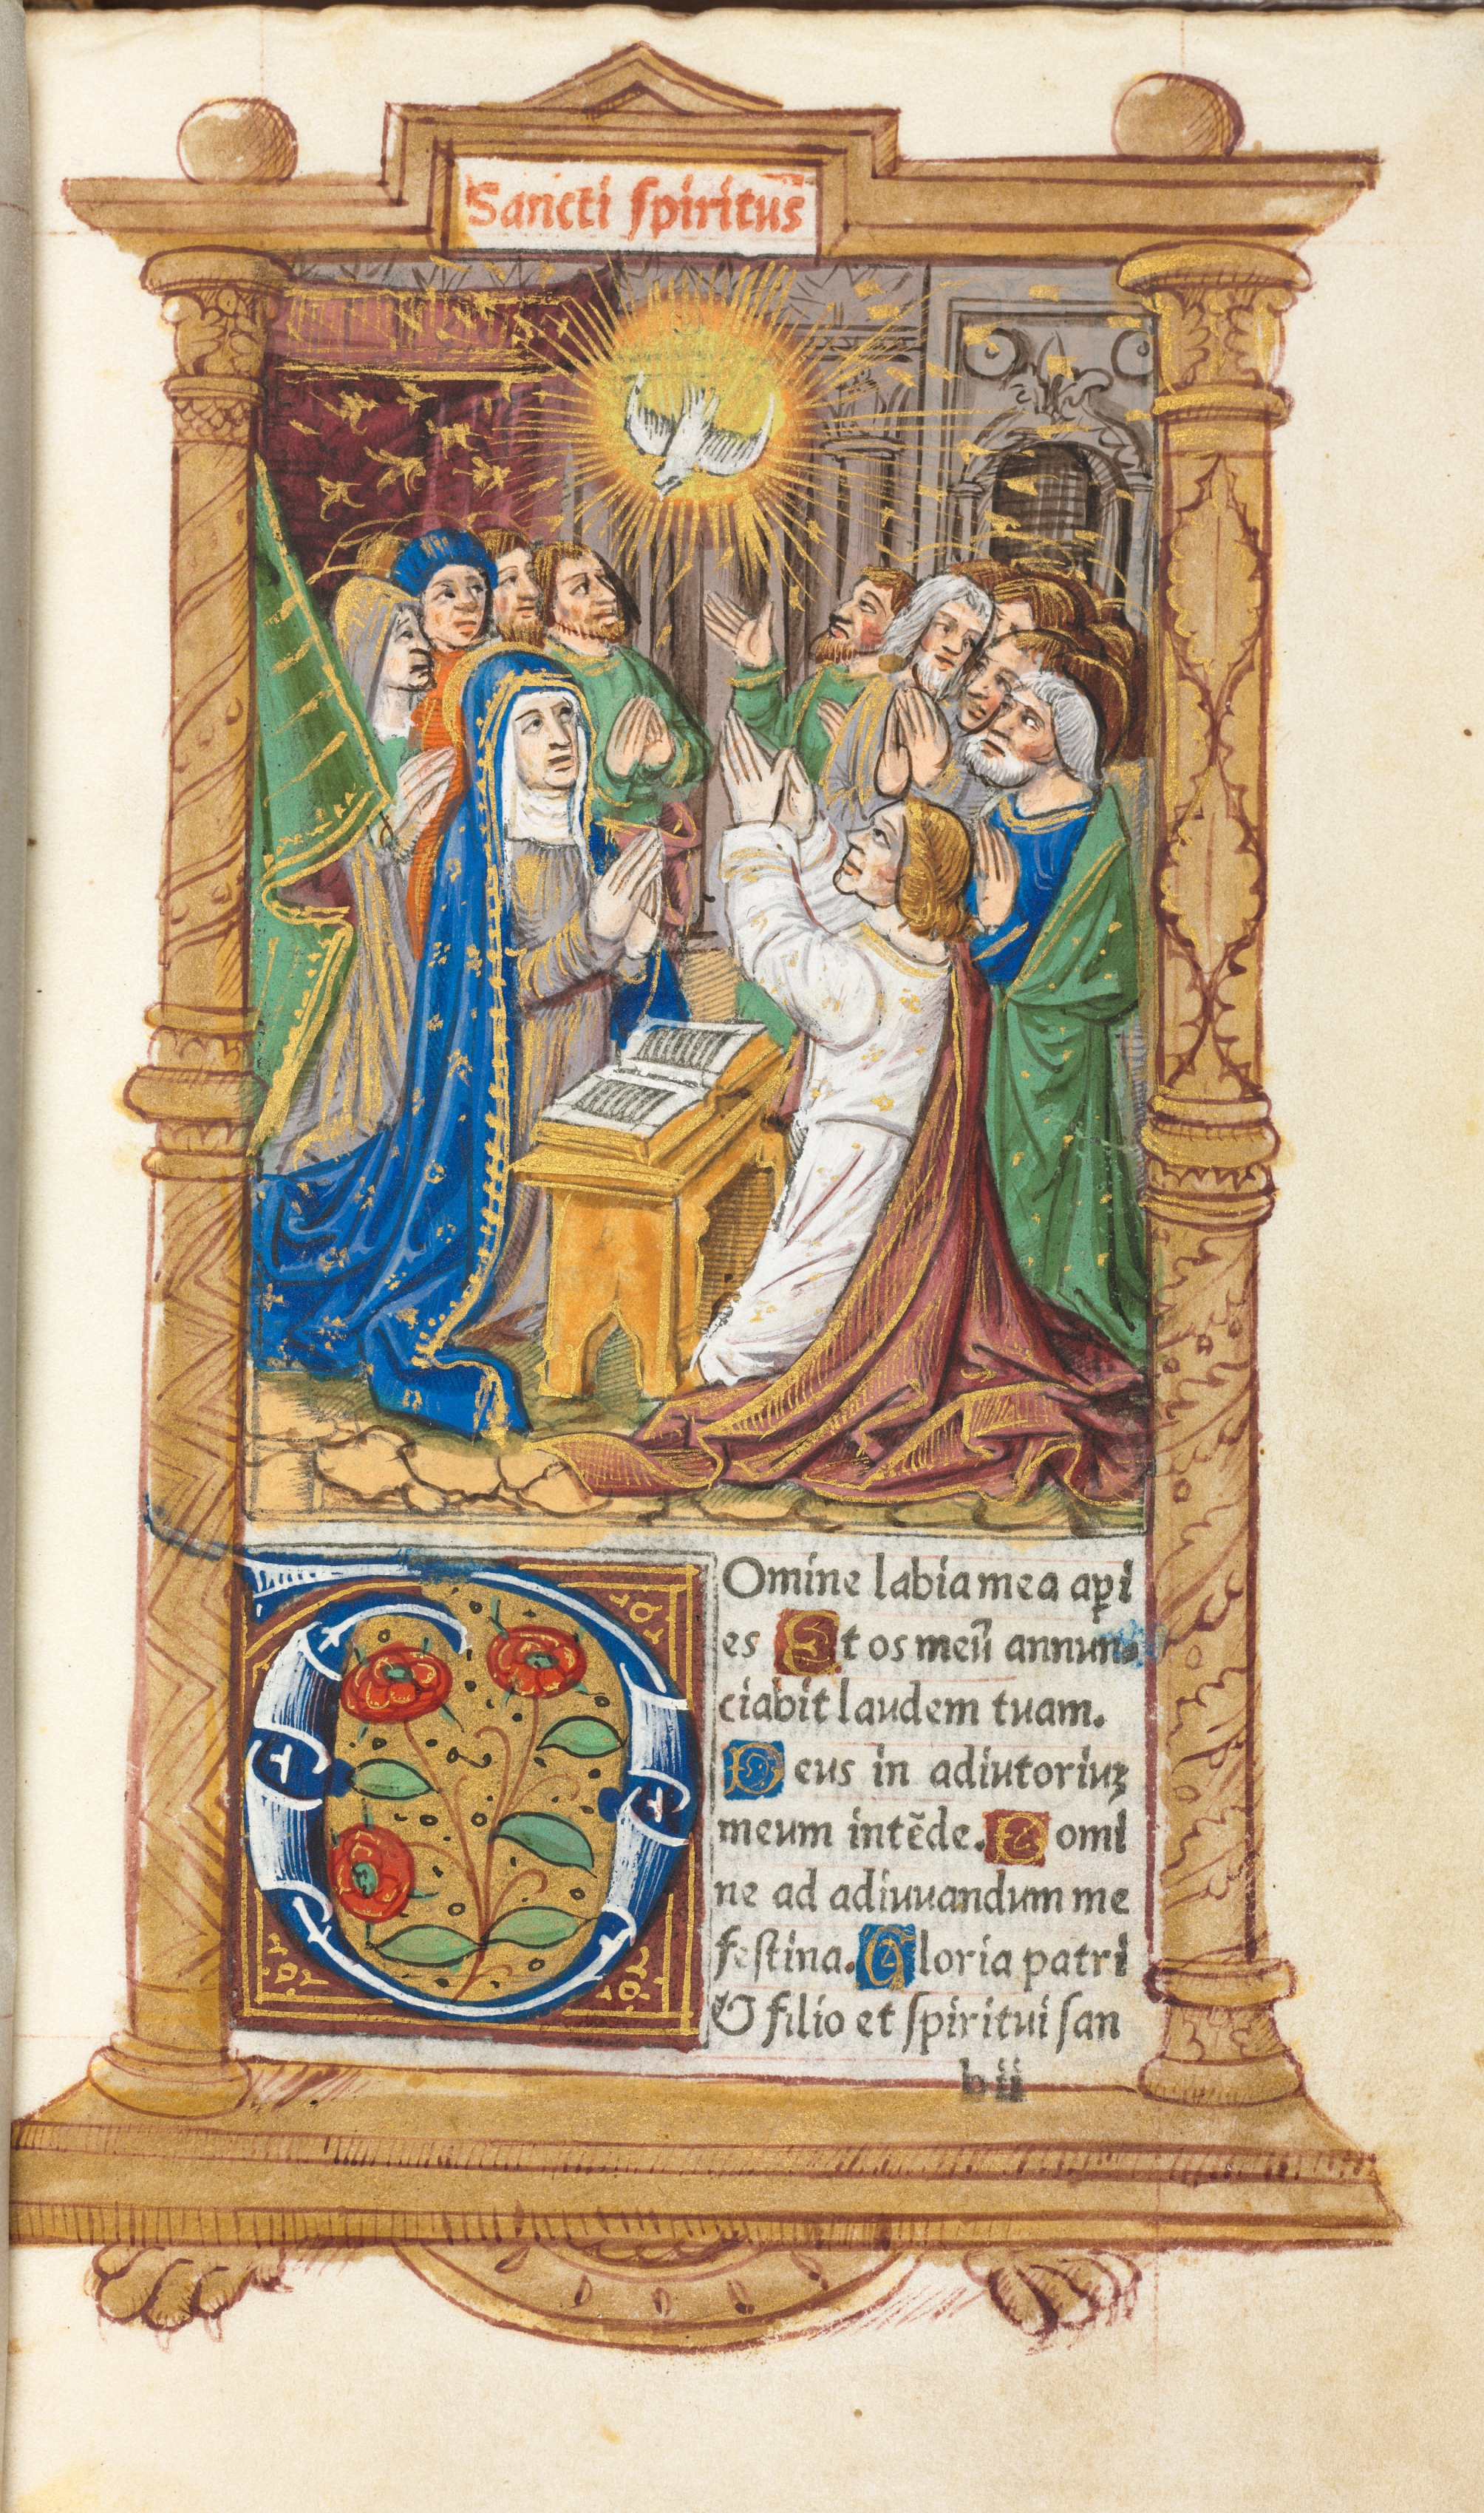 Sancti ſpiritus̄
Omine labia mea aꝑi
es Et os meū annun-
ciabit laudem tuam.
Deus in adiutoriuꝫ
meum intēde. Domi
ne ad adiuuandum me
feſtina. Gloria patri
& filio et ſpiritui ſan
b ii